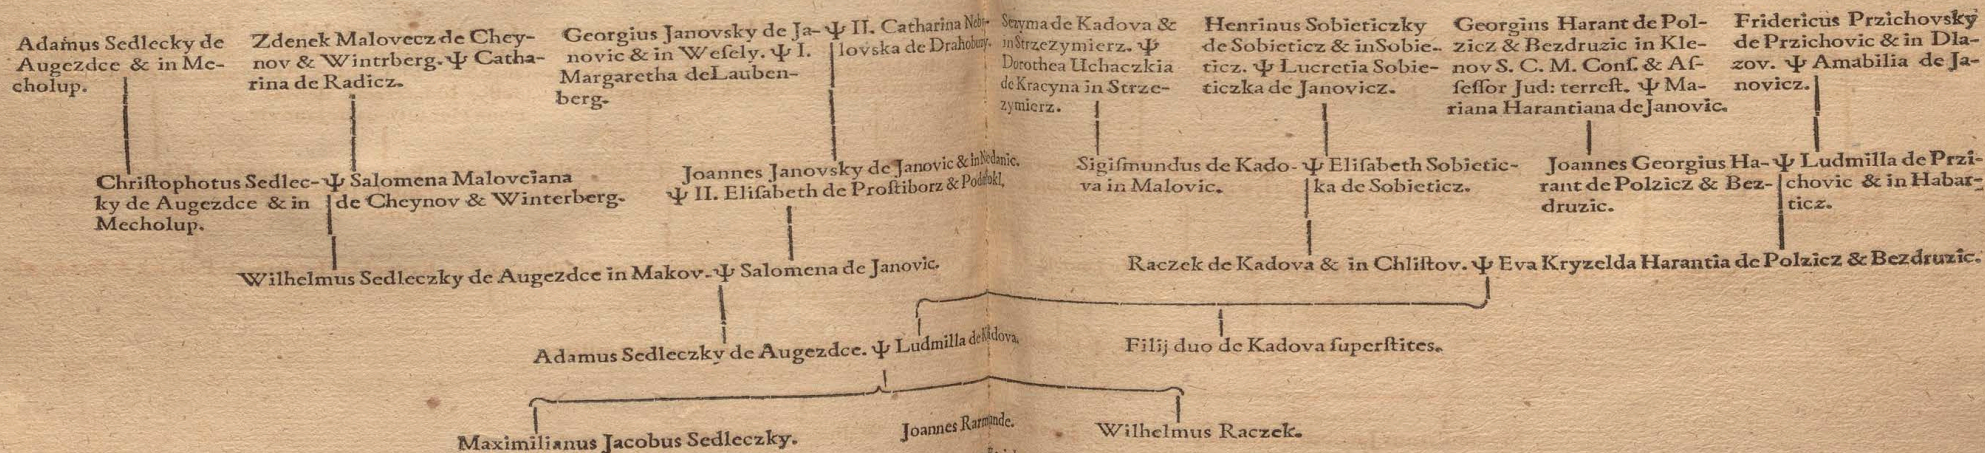 Adamus Sedlecky de
Augezdce & in Me-
cholup.
Zdenek Malovecz de Chey-
nov & Wintrberg. Ψ Catha-
rina de Radicz.
Georgius Janovsky de Ja-Ψ II. Catharina Nebi-
novic & in Wesely. Ψ I. lovska de Drahobuz.
Margaretha deLauben-
berg.
Sezyma de Kadova &
in Strzezymierz. Ψ
Dorothea Uchaczkia
de Kracyna in Strze-
zymierz.
Henrinus Sobieticzky
de Sobieticz & inSobie-
ticz. Ψ Lucretia Sobie-
ticzka de Janovicz.
Georgius Harant de Pol-
zicz & Bezdruzic in Kle-
nov S. C. M. Conſ. & Aſ-
ſeſſor Jud: terreſt. Ψ Ma-
riana Harantiana deJanovic.
Fridericus Przichovsky
de Przichovic & in Dla-
zov. Ψ Amabilia de Ja-
novicz.
Chriſtophotus Sedlec-Ψ Salomena Malovciana
ky de Augezdce & in de Cheynov & Winterberg.
Mecholup.
Joannes Janovsky de Janovic & in
Ψ II. Eliſabeth de Proſtiborz &
Sigiſmundus de Kado- Ψ Eliſabeth Sobietic-
va in Malovic. ka de Sobieticz.
Joannes Georgius Ha-Ψ Ludmilla de Przi-
rant de Polzicz & Bez- chovic & in Habar-
druzic. ticz.
Wilhelmus Sedleczky de Augezdce in Makov. Ψ Salomena de Janovic.
Raczek de Kadova & in Chliſtov. Ψ Eva Kryzelda Harantia de Polzicz & Bezdruzic.
Adamus Sedleczky de Augezdce. Ψ Ludmilla de Kadova.
Filij duo de Kadova ſuperſtites.
Maximilianus Jacobus Sedleczky.
Joannes
Wilhelmus Raczek.